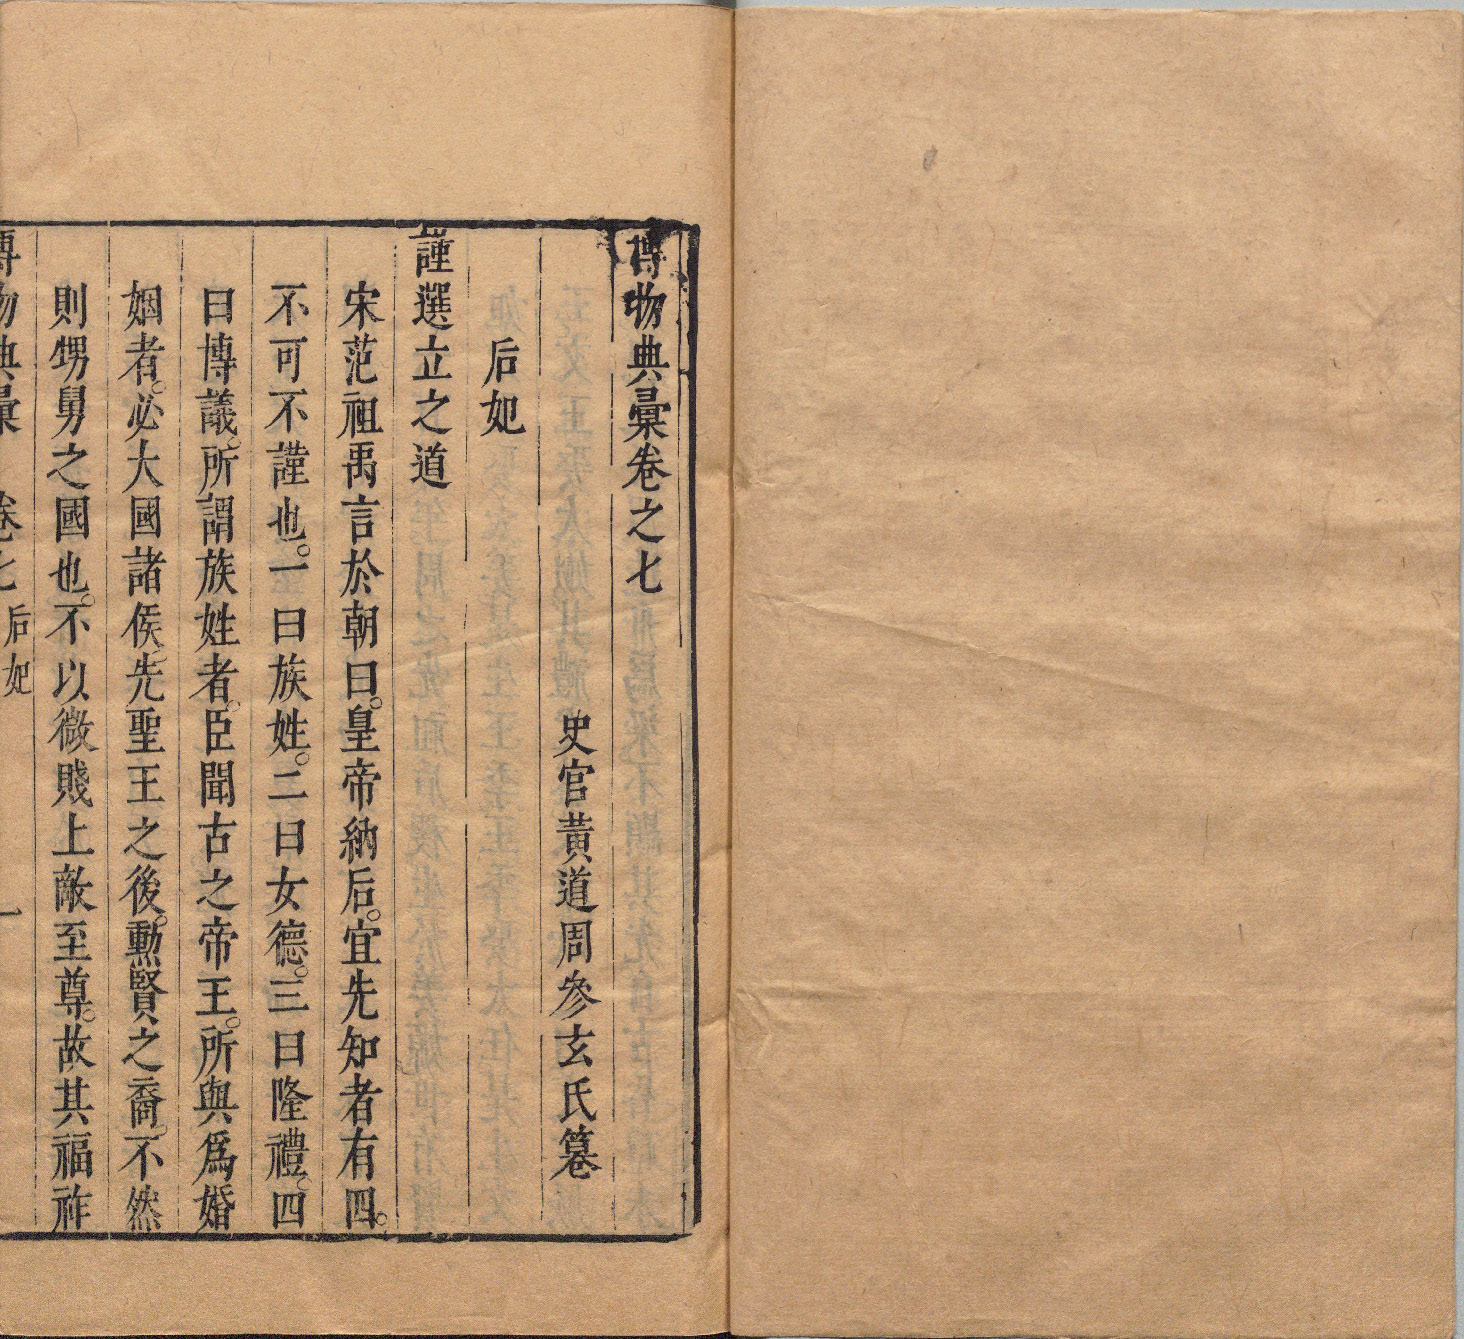 博物典彙卷之七
史官黃道周參玄氏纂
后妃
謹選立之道
宋范祖禹言於朝曰。皇帝納后。宜先知者有四。
不可不謹也。一曰族姓。二曰女德。三曰隆禮。四
曰博議。所謂族姓者。臣聞古之帝王。所與爲婚
姻者。必大國諸侯。先聖王之後。勳賢之裔。不然
則甥舅之國也。不以微賤上敵至尊。故其福祚
博物典彙 卷七 后妃 一